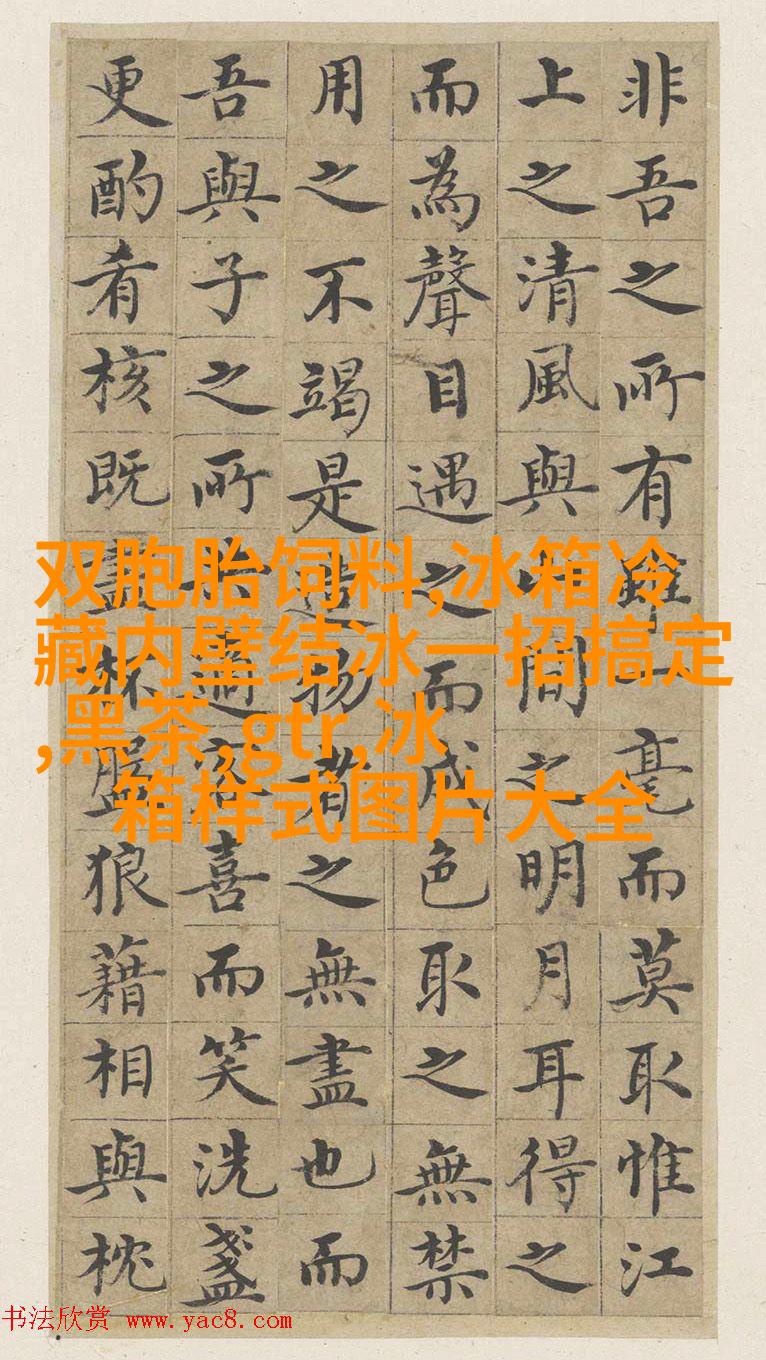 非吾之所有雖一毫而莫取惟江
上之清風與山間之明月耳得之
而為聲目遇之而成色取之無禁
用之不竭是造物者之無盡也而
吾與子之所共適客喜而笑洗盞
更酌肴核既盡杯盤狼藉相與枕
双胞胎饲料,冰箱冷
藏内壁结冰一招搞定
,黑茶,gtr,冰
箱样式图片大全
书法欣赏 www.yac8.com